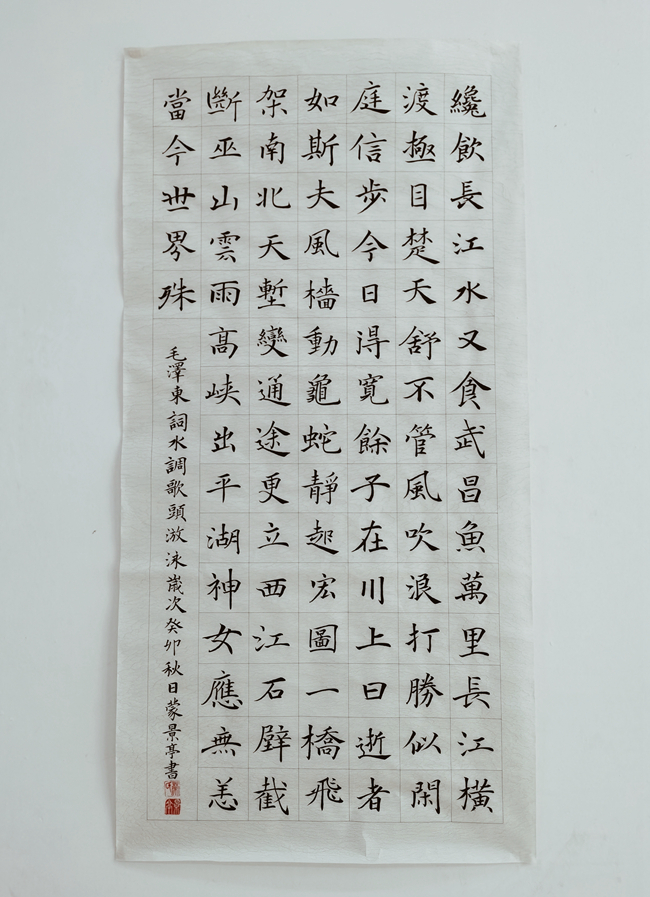 纔飲長江水又食武昌魚萬里長江橫
渡極目楚天舒不管風吹浪打勝似閑
庭信步今日得寬餘子在川上曰逝者
如斯夫風檣動龜蛇靜起宏圖一橋飛
架南北天塹變通途更立西江石壁截
斷巫山雲雨髙峽出平湖神女應無恙
當今世界殊
毛澤東詞水調歌頭游泳歲次癸卯秋日蒙景亭書